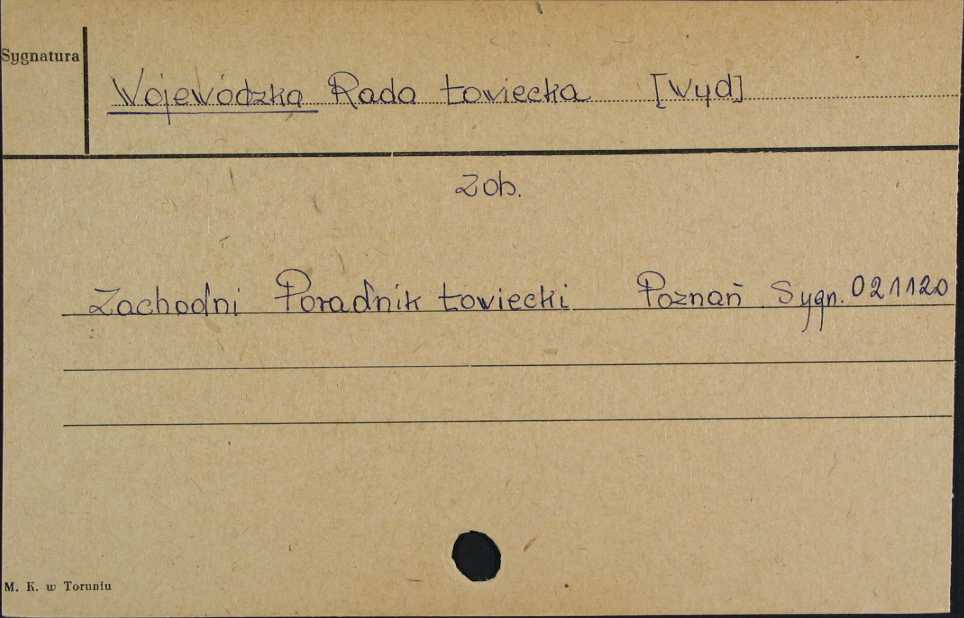 Sygnatura
Wojewódzka Rada Łowiecka [Wyd]
Zob.
Zachodni Poradnik Łowiecki Poznań Sygn. 021120
M. K. w Toruniu